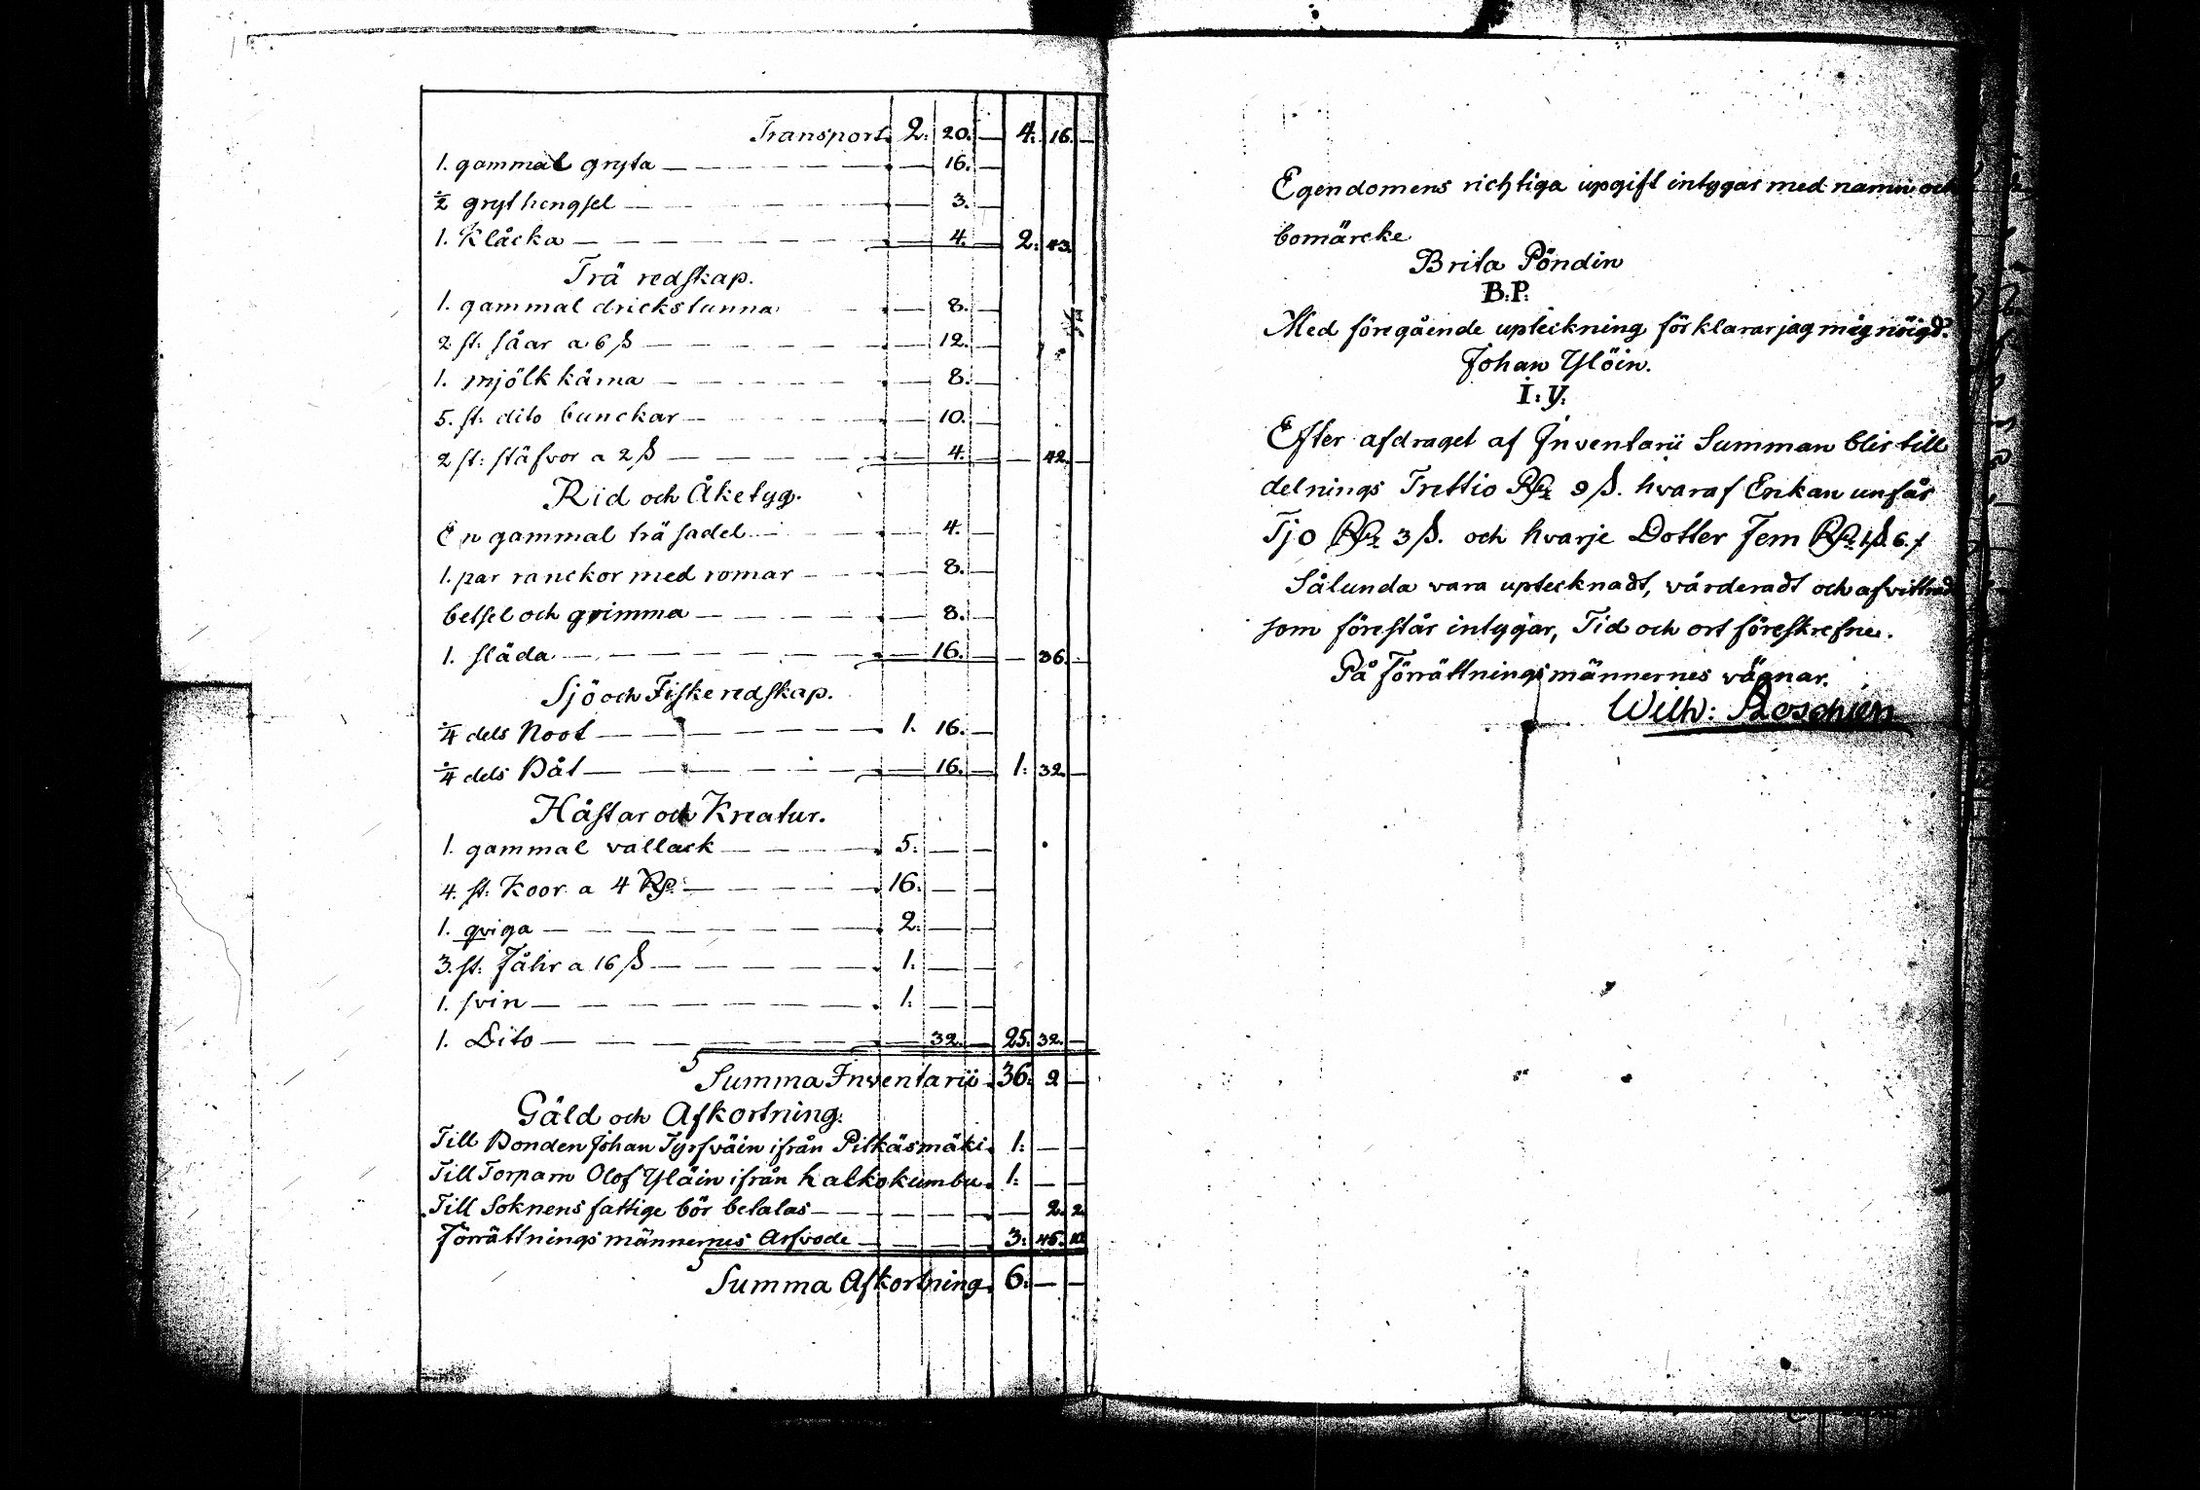 Transport. 2. 20. — 4. 16. —
1. gammal gryta — — 16. —
1/2 grythengsel — — 3. —
1. Klåcka — — 4. — 2. 43.
Trä redskap.
1. gammal drickstunna — 8. —
2 st: såar a 6 ß — — 12. —
1. mjölk kärna — — 8. —
5. st: dito bunckar — — 10. —
2 st: stäfvor a 2 ß — — 4. — — 42. —
Rid och Åketyg.
En gammal trä sadel — — 4. —
1. par ranckor med romar — — 8. —
betsel och grimma — — 8. —
1. släda — — 16. — — 36. —
Sjö och Fiske redskap.
1/4 dels Noot — 1. 16. —
1/4 dels Båt — — 16. — 1: 32. —
Hästar och Kreatur.
1. gammal vallack — 5. — —
4. st: Koor a 4 Rp: — 16. — —
1. qviga — 2. — —
3. st: Fåhr a 16 ß — 1. — —
1. svin — 1. — —
1. Dito — — 32. — 25. 32. —
Summa Inventarii 36. 9 —
Gäld och Afkortning.
Till Bonden Johan Tyrfväin ifrån Pitkäsmäki. 1. — —
Till Torparn Olof Yläin ifrån Kalkokumbu. 1. — —
Till Soknens fattige bör betalas — — 2. 2.
Förrättnings männernes Arfvode — 3. 45. 10
Summa Afkortning. 6. — —
Egendomens richtiga upgift intygar med namn och
bomärcke
Brita Pöndin
B: P:
Med föregående upteckning förklarar jag mig nöigd.
Johan Ylöin.
I: Y:
Efter afdraget af Inventarii Summan blir till
delnings Trettio Rp 9 ß. hvaraf Enkan unfår
Tjo Rp 3 ß. och hvarje Dotter Fem Rp 1 ß. 6.
Sålunda vara uptecknadt, värderadt och afvittrad
som förestår intygar, Tid och ort föreskrefne.
På Förrättnings männernes vägnar.
Wilh: